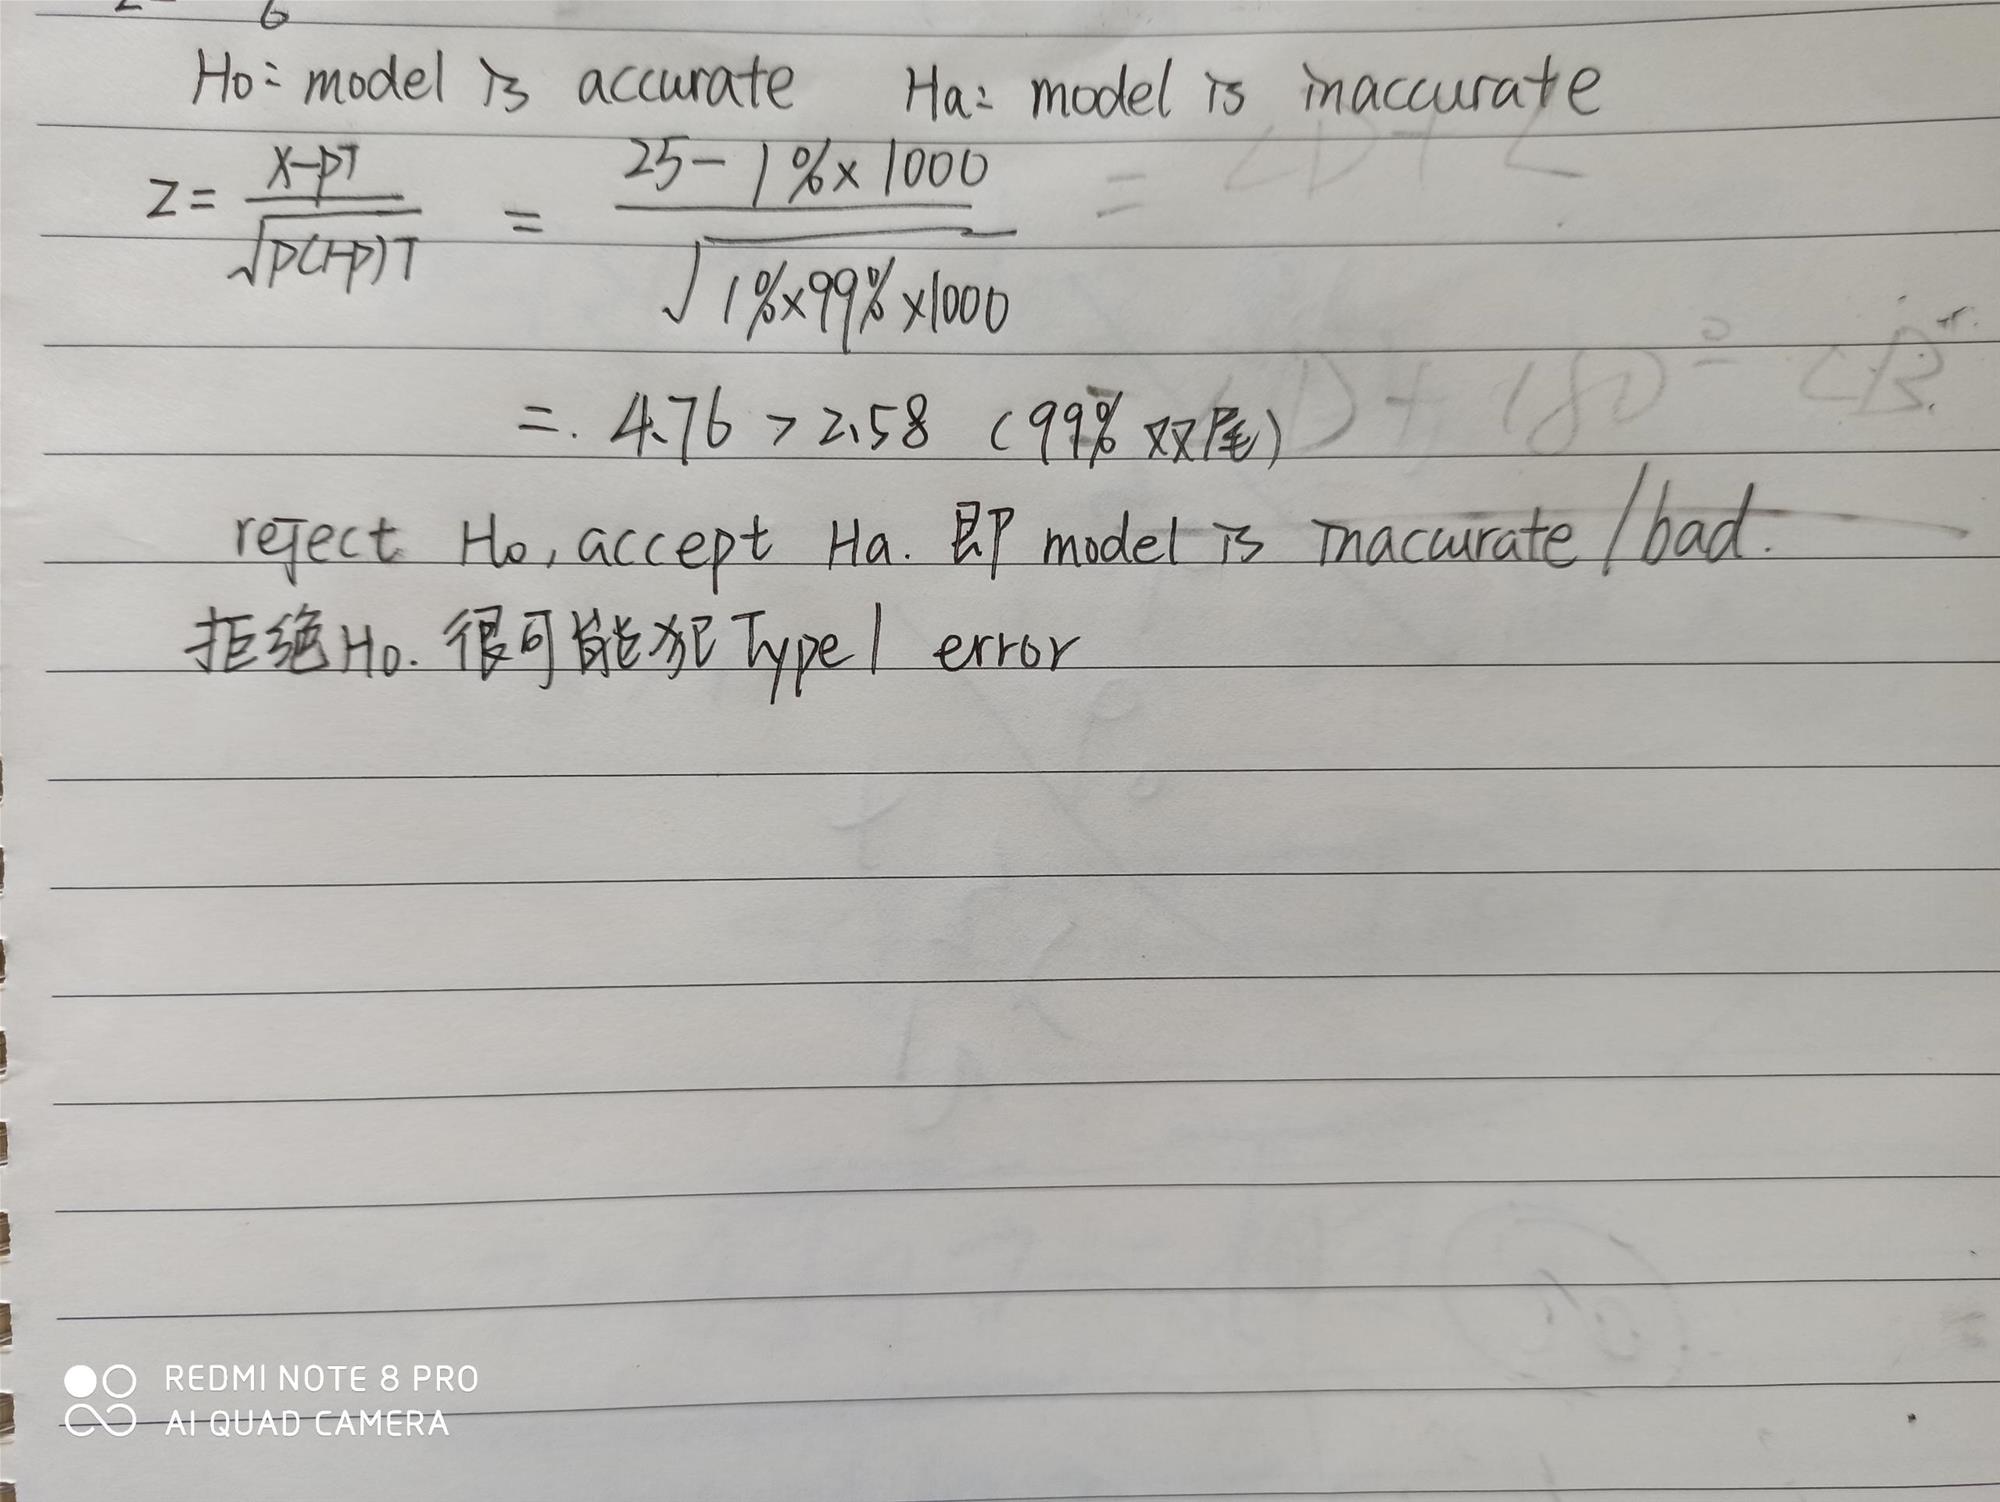 H0: model is accurate Ha: model is inaccurate
Z = (x-pT)/√(p(1-p)T) = (25-1%×1000)/√(1%×99%×1000)
=. 4.76 > 2.58 (99% 双尾)
reject H0, accept Ha. 即 model is inaccurate/bad.
拒绝H0. 很可能犯Type1 error
REDMI NOTE 8 PRO
AI QUAD CAMERA